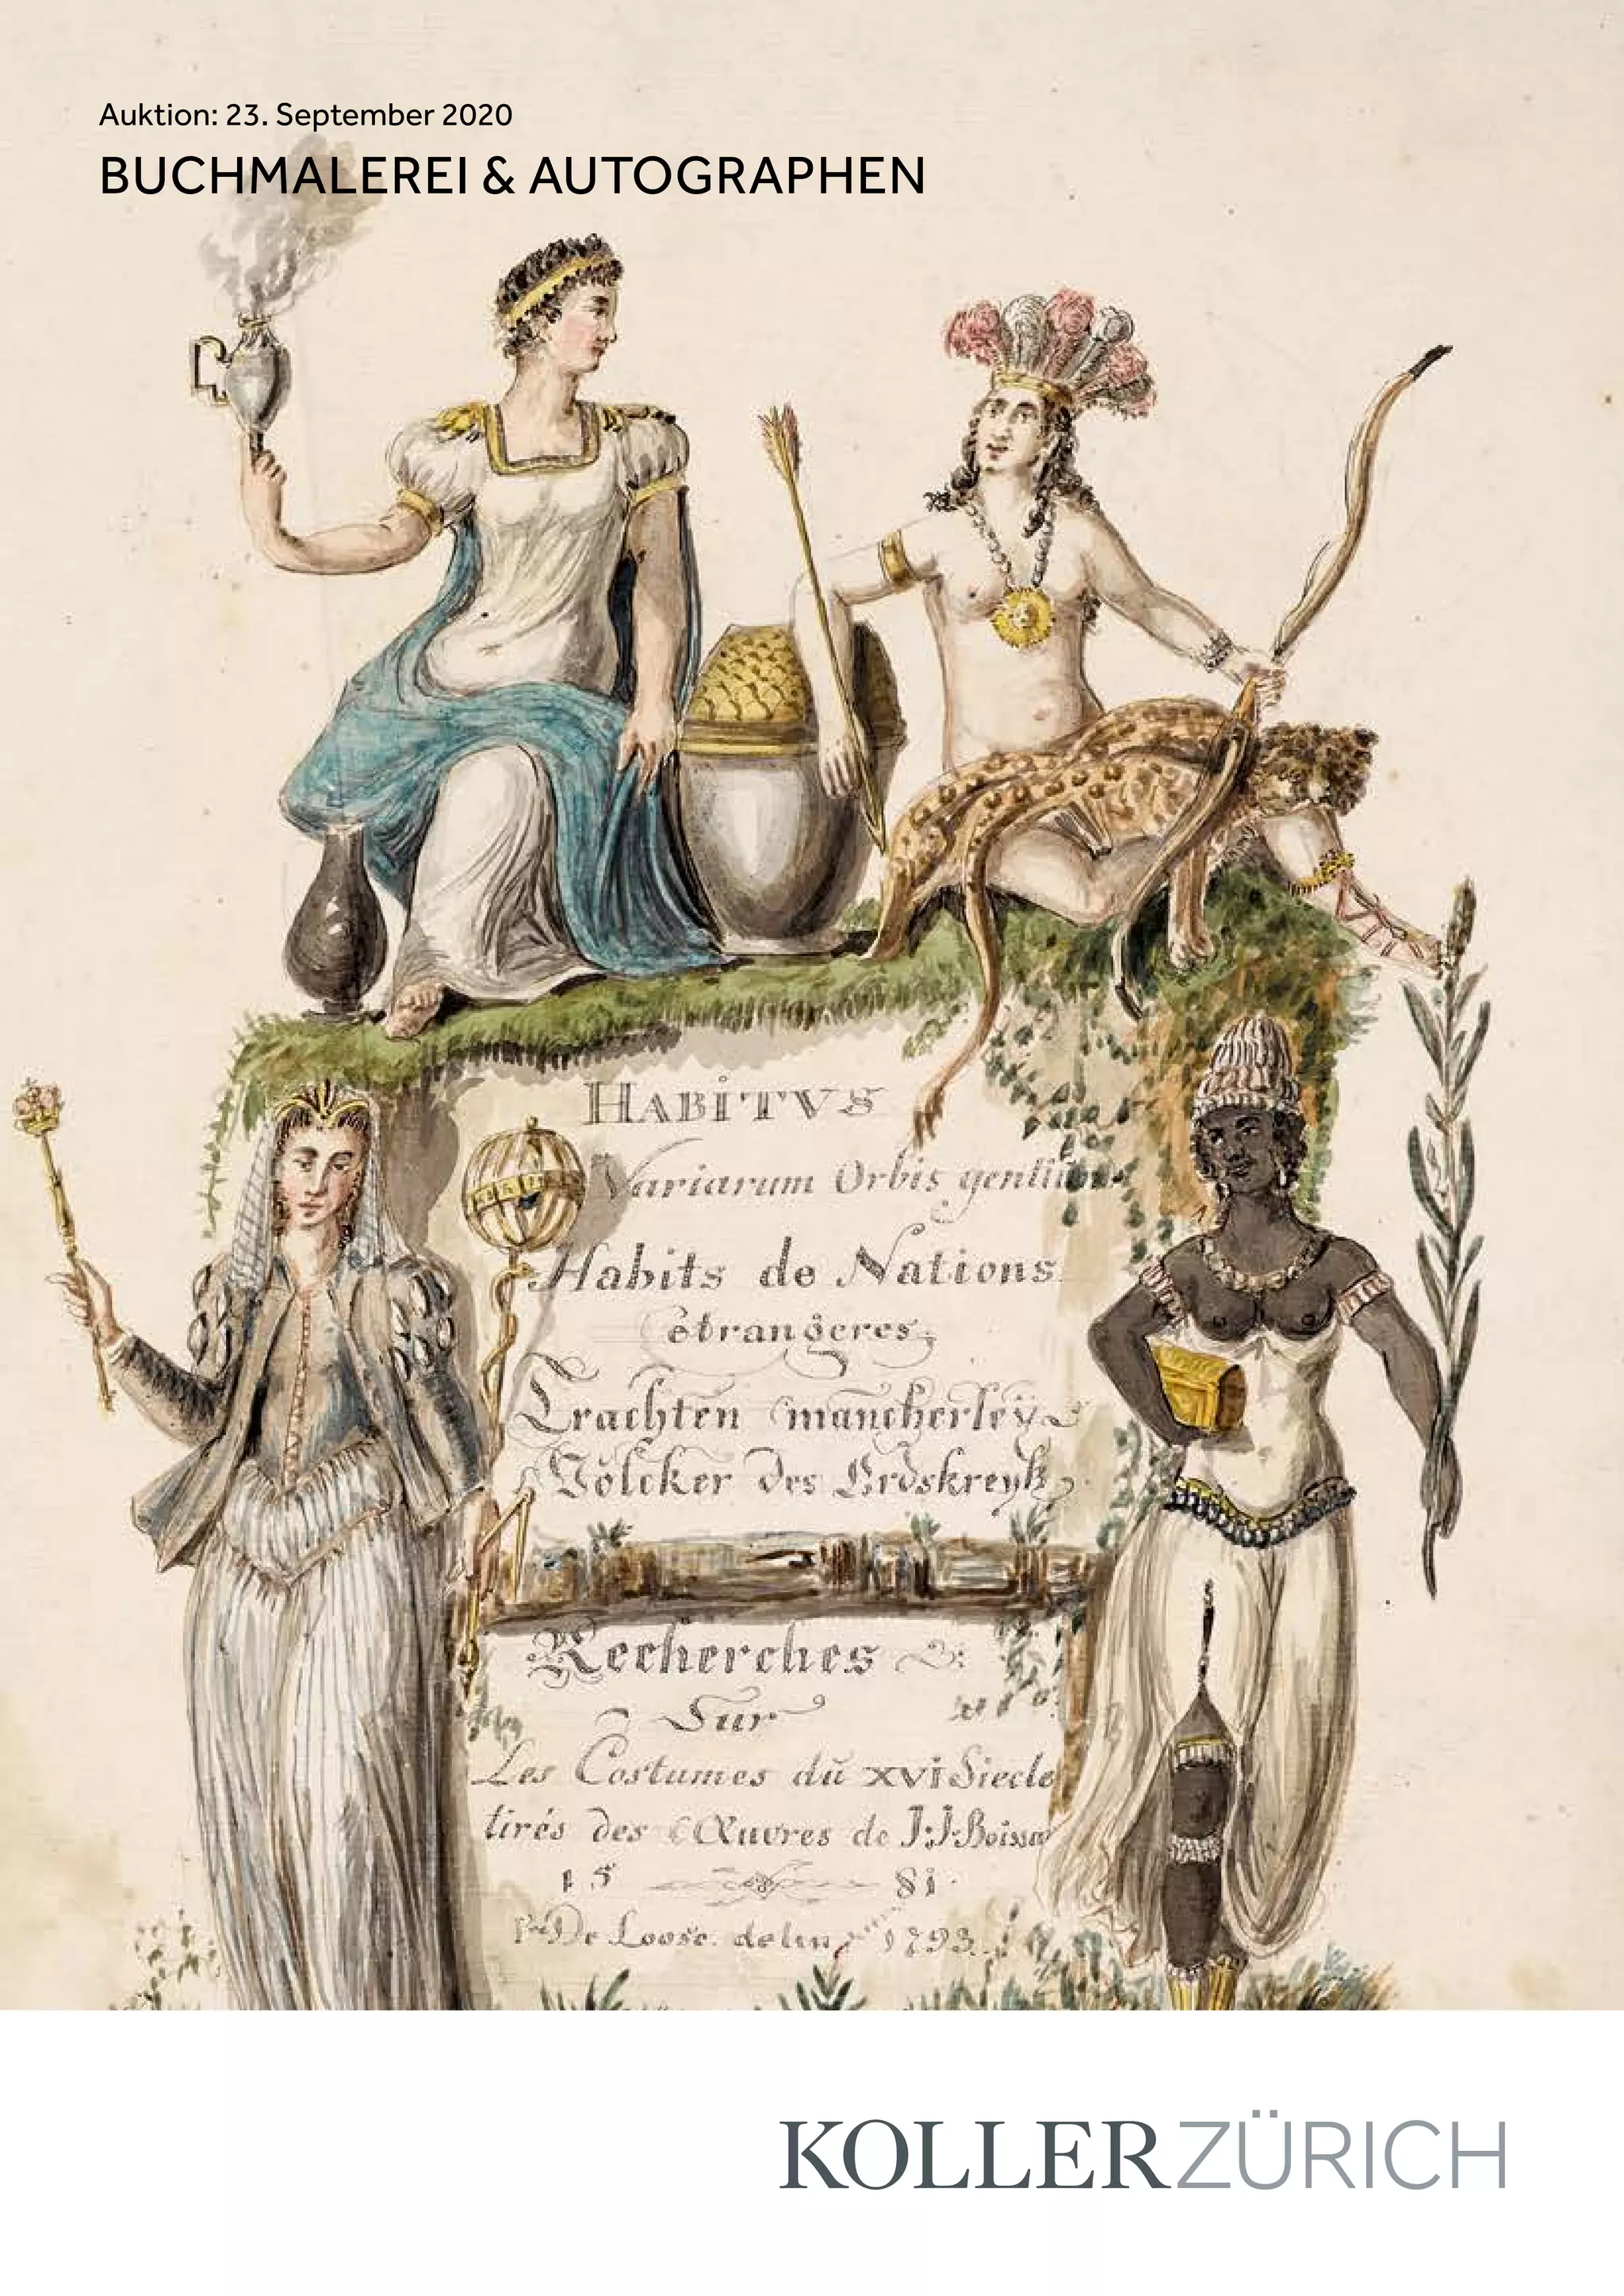 Auktion: 23. September 2020
BUCHMALEREI & AUTOGRAPHEN
HABiTVS
Variarum Orbis gentium
Habits de Nations
étrangeres
Trachten mancherley
Völcker des Erdskreyß
Recherches
Sur
Les Costumes du XVI Siecle
tirés des Œuvres de J:J:Boissa
15 81.
De Loose. delin 1793.
KOLLERZÜRICH